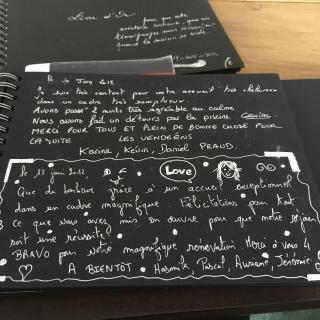 Livre d'Or
pour que cette
aventure continue, que vos
témoignages nous
quand la maison se vide.
Juin 2012
Je suis très content pour votre accueil très chaleureux
dans un cadre très somptueux.
Avons passé 2 nuits très agréable au calme
Nous avons fait un détours par la piscine Géniale.
MERCI POUR TOUS ET PLEIN DE BONNE CHOSE POUR
LA SUITE LES VENDEENS
Karine, Kévin, Daniel PRAUD.
le 17 juin 2012,
Love
Que du bonheur grâce à un accueil exceptionnel
dans un cadre magnifique. Félicitations pour tout
ce que vous avez mis en œuvre pour que notre séjour
soit une réussite!
BRAVO pour votre magnifique rénovation. Merci à vous 4
A BIENTÔT Hasmik, Pascal, Auriane, Jérémie.